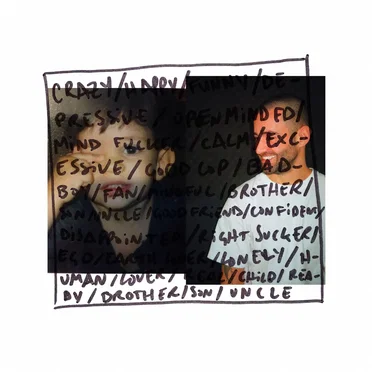 CRAZY/HAPPY/FUNNY/DE-
PRESSIVE/OPENMINDED/
MIND FUCKER/CALM/EXC-
ESSIVE/GOOD COP/BAD-
BOY/FAN/MINDFUL/BROTHER/
SON/UNCLE/GOOD FRIEND/CONFIDENT/
DISAPPOINTED/RIGHT SUCKER/
EGO/ LOVER/LONELY/H-
UMAN/LOVER/ /CHILD/REA-
DY/DROTHER/SON/UNCLE